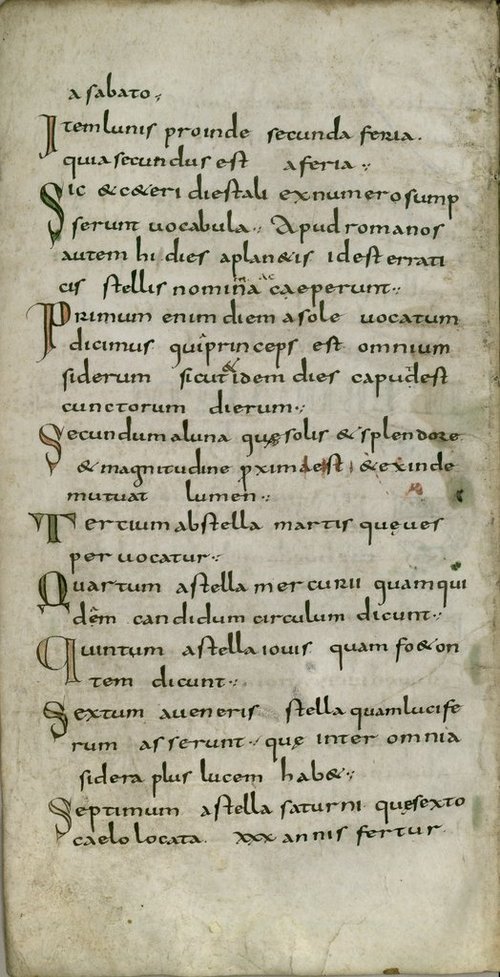 a sabato ;
Item lunis proinde secunda feria .
quia secundus est a feria ;
Sic & c&eri dies tali ex numero sump
serunt uocabula ; Apud romanos
autem hi dies a plan&is id est errati
cis stellis nomina ac caeperunt ;
Primum enim diem a sole uocatum
dicimus qui princeps est omnium
siderum sicut & idem dies caput est
cunctorum dierum ;
Secundum a luna quę solis & splendore
& magnitudine proxima est & exinde
mutuat lumen ;
Tertium ab stella martis quę ues
per uocatur ;
Quartum a stella mercurii quam qui
dem candidum circulum dicunt ;
Quintum a stella iouis quam fo&on
tem dicunt ;
Sextum a ueneris stella quam lucife
rum asserunt ; quę inter omnia
sidera plus lucem hab& ;
Septimum a stella saturni quę sexto
caelo locata xxx annis fertur